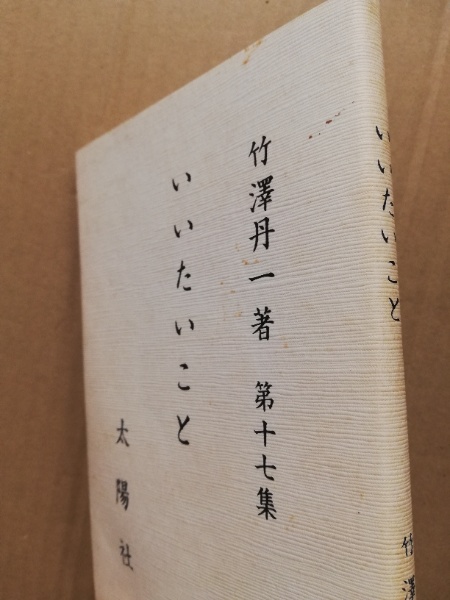 竹澤丹一著 第十七集
いいたいこと
太陽社
いいたいこと
竹澤